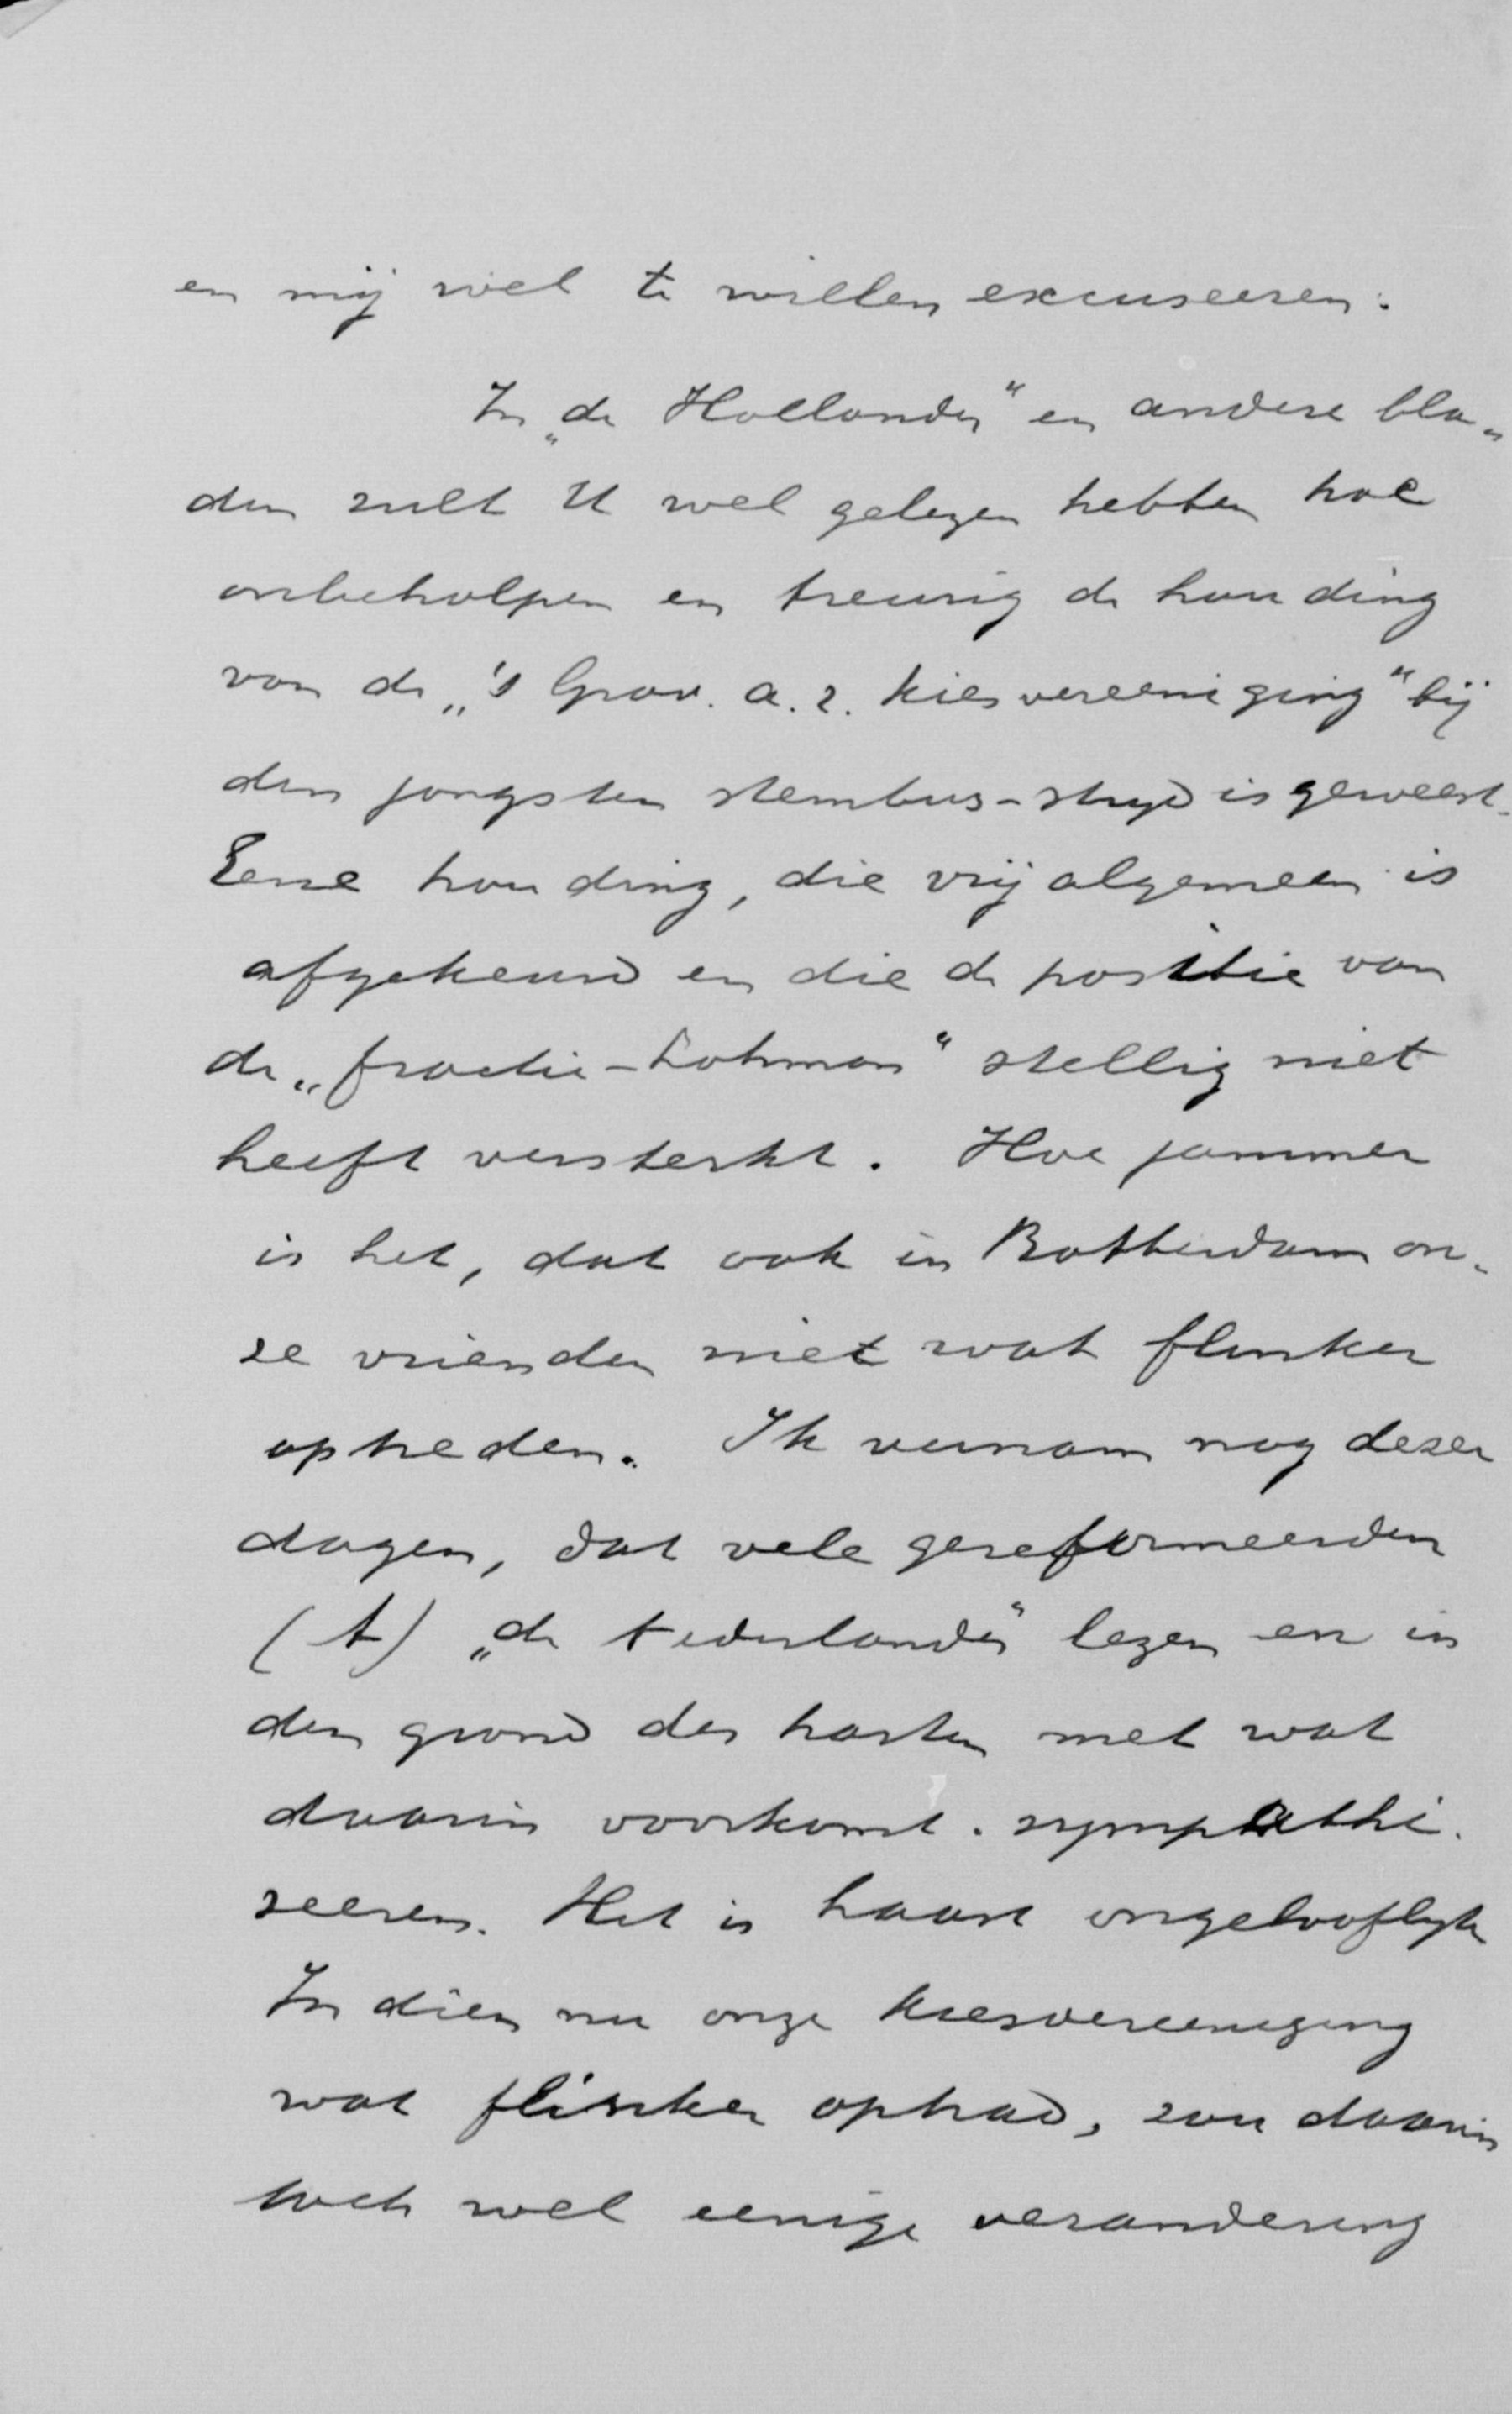 en mij wel te willen excuseeren.
In „de Hollander" en andere bla„
den zult U wel gelezen hebben hoe
onbeholpen en treurig de houding
van de „'s Grav. a. r. kiesvereeniging" bij
den jongsten stembus-strijd is geweest.
Eene houding, die vrij algemeen is
afgekeurd en die de positie van
de „fractie-Lohman" stellig niet
heeft versterkt. Hoe jammer
is het, dat ook in Rotterdam on-
ze vrienden niet wat flinker
optreden. Ik vernam nog dezer
dagen, dat vele gereformeerden
(A) „de Nederlander" lezen en in
den grond des harten met wat
daarin voorkomt. sympathi-
seeren. Het is haast ongelooflijk
Indien nu onze kiesvereeniging
wat flinker optrad, zou daarin
toch wel eenige verandering